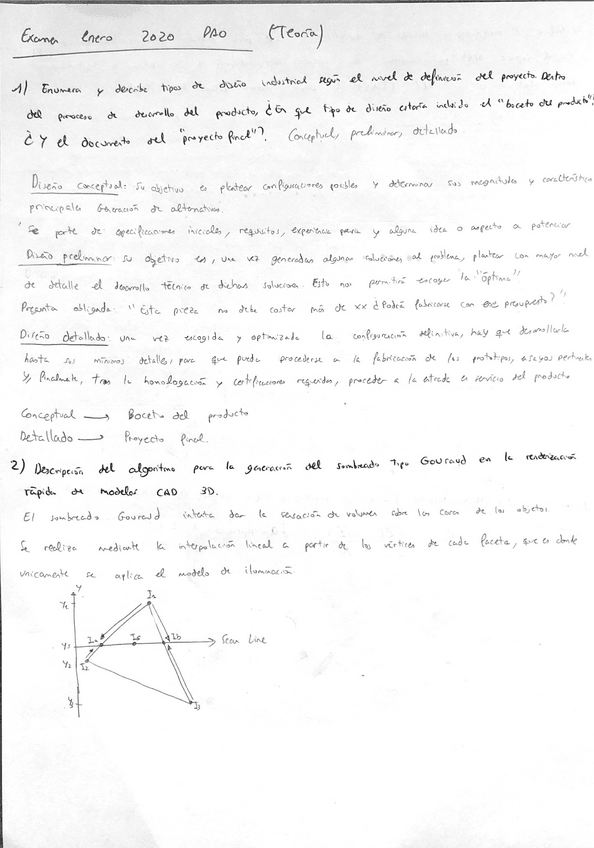 Examen Enero 2020 DAO (Teoría)
1) Enumera y describe tipos de diseño industrial según el nivel de definición del proyecto. Dentro
del proceso de desarrollo del producto, ¿En que tipo de diseño estaría incluido el "boceto del producto"?
¿Y el documento del "proyecto final"? Conceptual, preliminar, detallado
Diseño conceptual: Su objetivo es plantear configuraciones posibles y determinar sus magnitudes y características
principales Generación de alternativas.
Se parte de especificaciones iniciales, requisitos, experiencia previa y alguna idea o aspecto a potenciar
Diseño preliminar: su objetivo es, una vez generadas algunas soluciones al problema, plantear con mayor nivel
de detalle el desarrollo técnico de dichas soluciones. Esto nos permitirá escoger la "óptima"
Pregunta obligada: "Esta pieza no debe costar más de xx ¿Podrá fabricarse con ese presupuesto?"
Diseño detallado: una vez escogida y optimizada la configuración definitiva, hay que desarrollarla
hasta sus mínimos detalles, para que pueda procederse a la fabricación de los prototipos, ensayos pertinentes
y, finalmente, tras la homologación y certificaciones requeridas, proceder a la entrada en servicio del producto
Conceptual → Boceto del producto
Detallado → Proyecto final.
2) Descripción del algoritmo para la generación del sombreado Tipo Gouraud en la renderización
rápida de modelos CAD 3D.
El sombreado Gouraud intenta dar la sensación de volumen sobre las caras de los objetos.
Se realiza mediante la interpolación lineal a partir de los vértices de cada faceta, que es donde
unicamente se aplica el modelo de iluminación
Y
Y1 I1
Ys Ia Is Ib Scan Line
Y2 I2
Y3 I3